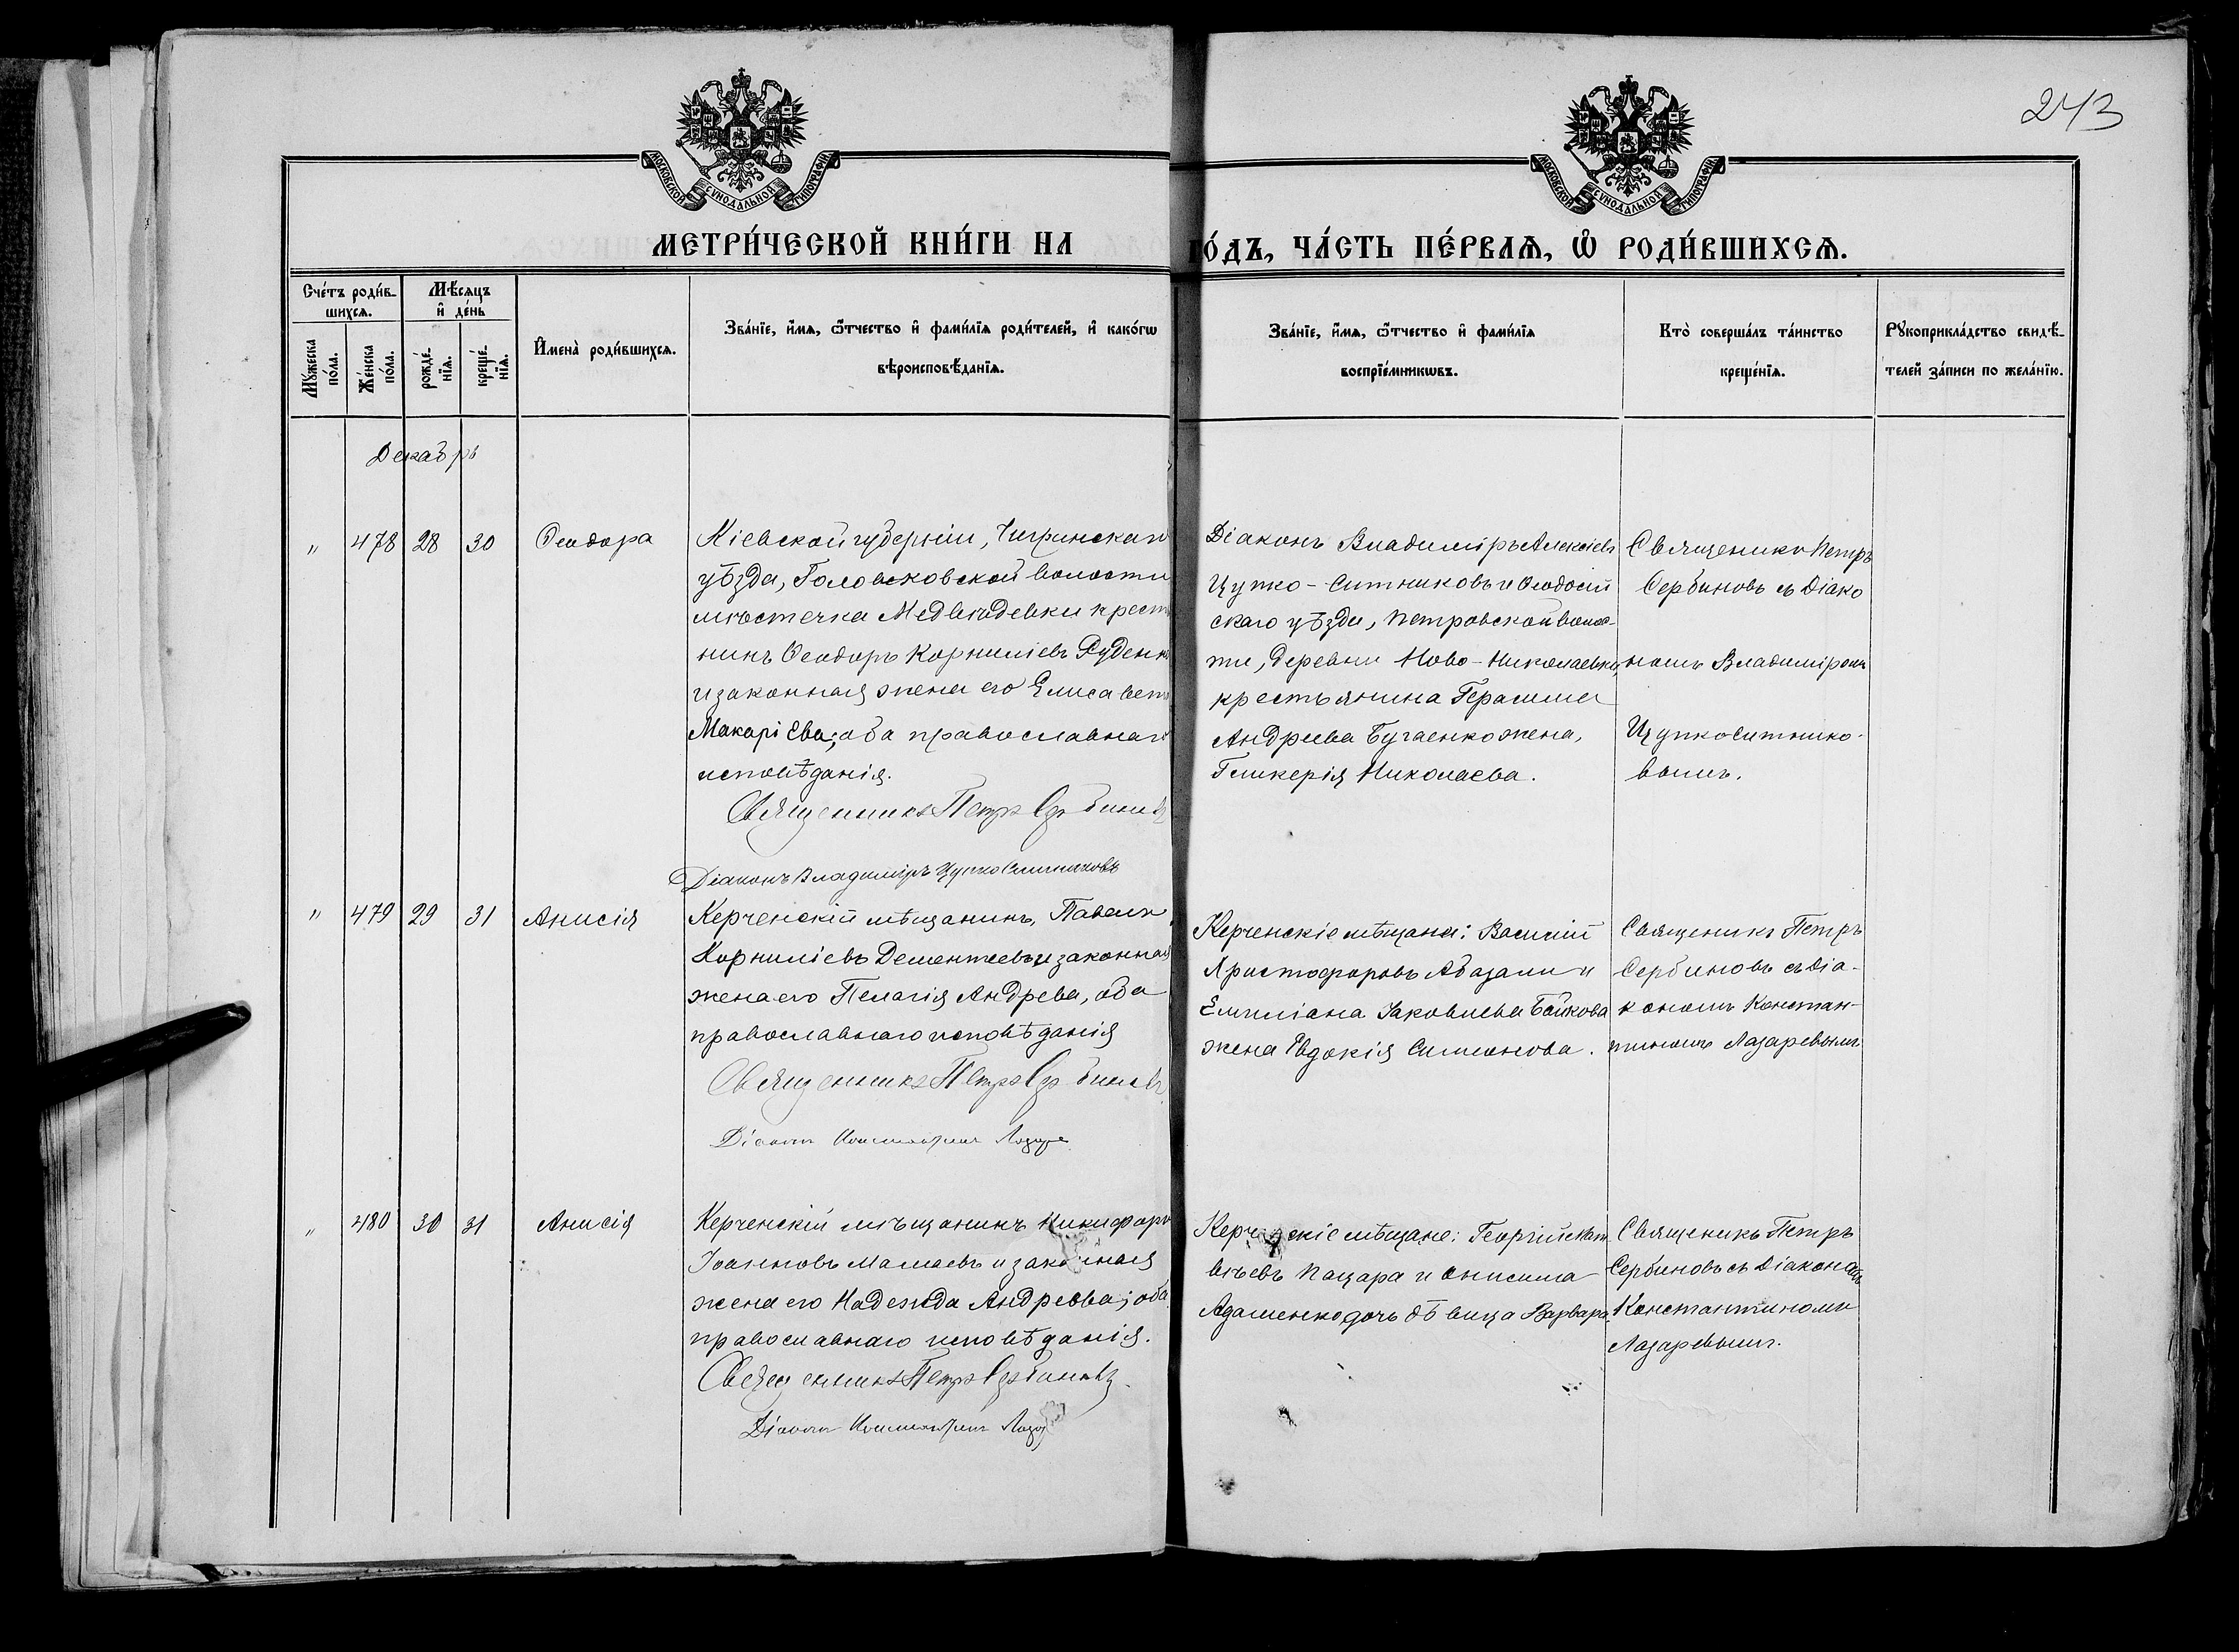 243
МОСКОВСКОЙ СѴНОДАЛЬНОЙ ТИПОГРАФІИ
МОСКОВСКОЙ СѴНОДАЛЬНОЙ ТИПОГРАФІИ
МЕТРИ́ЧЕСКОЙ КНИ́ГИ НА
ГО́ДЪ, ЧА́СТЬ ПЕ́РВАѦ, Ѡ҆ РОДИ́ВШИХСѦ.
Сче́тъ роди́в-
шихсѧ.
Мѣ́сяцъ
и҆ де́нь
Мꙋ́жеска
по́ла.
Же́нска
по́ла.
рожде́-
нїѧ.
креще́-
нїѧ.
И҆мена̀ роди́вшихсѧ.
Зва́нїе, и҆́мѧ, ѻ҆́тчество и҆ фами́лїѧ роди́телей, и҆ како́гѡ
вѣроисповѣ́данїѧ.
Зва́нїе, и҆́мѧ, ѻ҆́тчество и҆ фами́лїѧ
воспрїе́мникѡвъ.
Кто̀ соверша́лъ та́инство
креще́нїѧ.
Рꙋкоприкла́дство свидѣ́-
телей за́писи по жела́нїю.
Декабрь
" 478 28 30 Ѳеодора
Кіевской губерніи, Чигринскаго
уѣзда, Головковской волости
мѣстечка Медвѣдевки крест
нинъ Ѳеодоръ Корниліевъ Руденк
и законная жена его Елисавет
Макаріева; оба православнаго
исповѣданія.
Священникъ Петръ Сербиновъ
Діаконъ Владиміръ Цупко Ситниковъ
Діаконъ Владиміръ Алексіевъ
Цупко-Ситниковъ и Ѳеодосій
скаго уѣзда, Петровской волос-
ти, деревни Ново-Николаевки,
крестьянина Герасима
Андреева Бугаенко жена,
Гликерія Николаева.
Священикъ Петръ
Сербиновъ съ Діако
номъ Владиміромъ
Цупко Ситнико-
вымъ.
" 479 29 31 Анисія
Керченскій мѣщанинъ, Павелъ
Корниліевъ Дементеевъ и законная
жена его Пелагія Андрева, оба
православнаго исповѣданія
Священникъ Петръ Сербиновъ
Діаконъ Константинъ Лазаре
Керченскіе мѣщане: Василій
Христофоровъ Абазали и
Емиліана Іаковлева Бойкова
жена Евдокія Симонова.
Священикъ Петръ
Сербиновъ съ Діа-
кономъ Констан-
тиномъ Лазаревымъ
" 480 30 31 Анисія
Керченскій мѣщанинъ Никифоръ
Іоанновъ Мамаевъ и законная
жена его Надежда Андреева; оба
православнаго исповѣданія.
Священникъ Петръ Сербиновъ.
Діаконъ Константинъ Лазар
Керченскіе мѣщане: Георгій Мат
вѣевъ Пацара и Онисима
Адаменко дочь дѣвица Варвара
Священикъ Петръ
Сербиновъ съ Діакономъ
Константиномъ
Лазаревымъ.